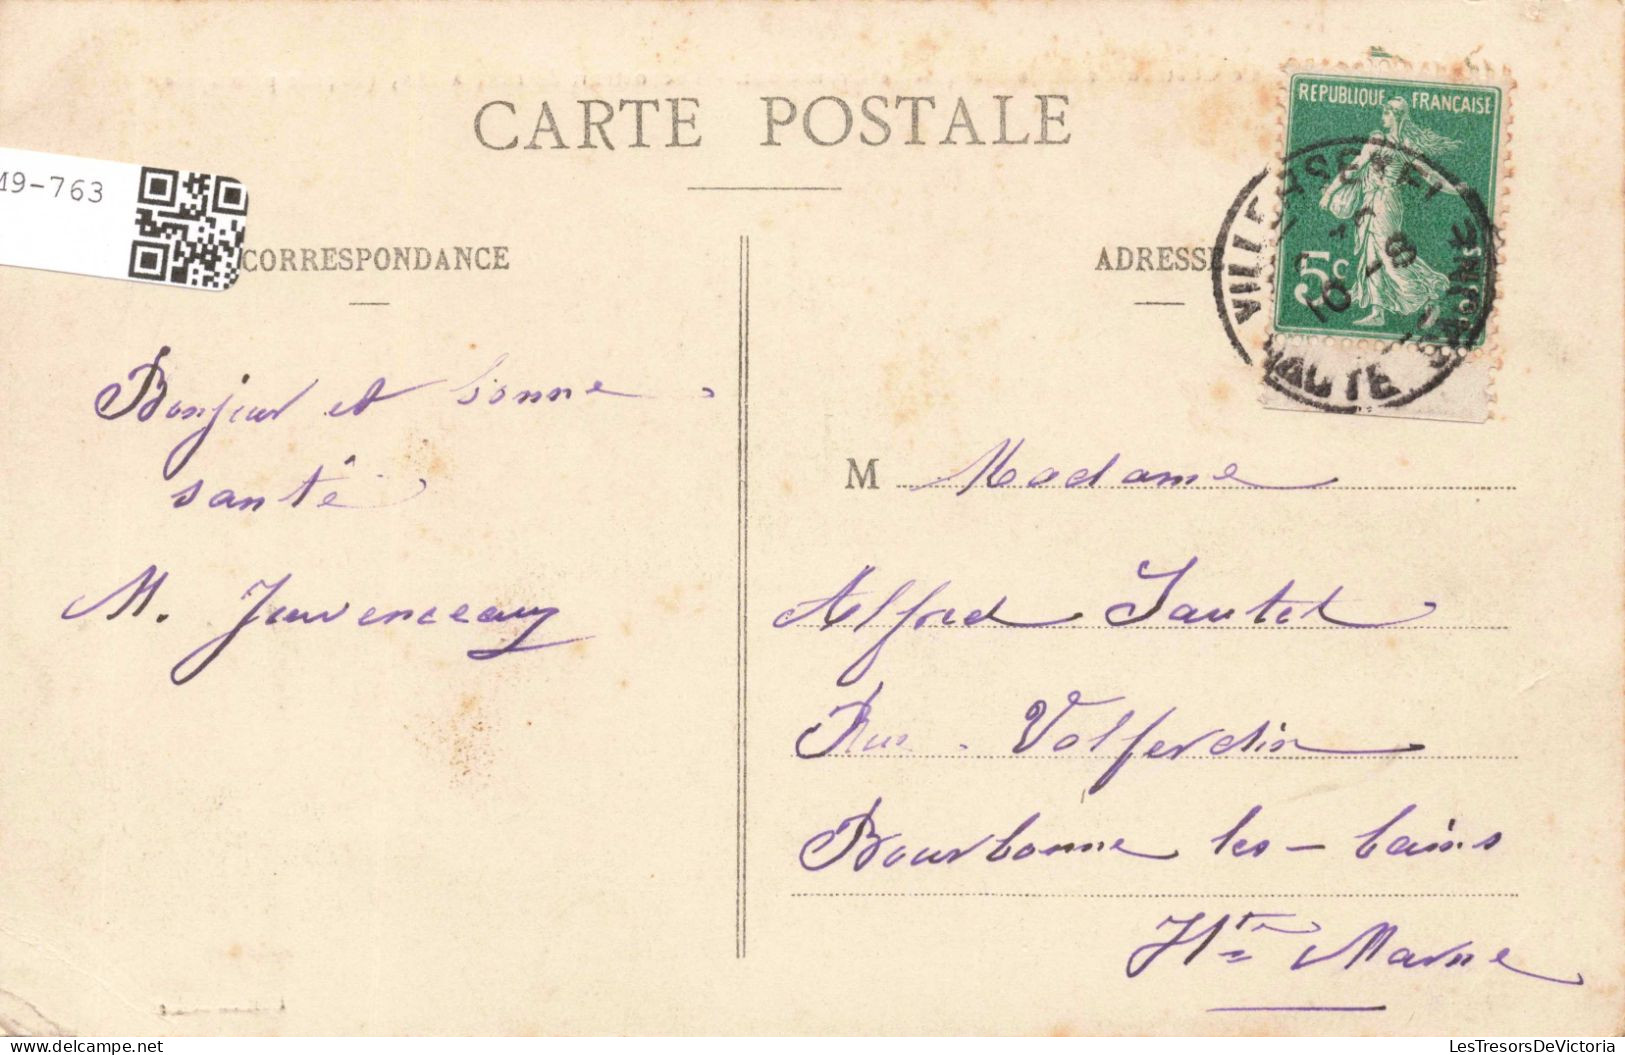 CARTE POSTALE
M9-763
CORRESPONDANCE
ADRESSE
REPUBLIQUE FRANÇAISE
5c
VILLERSEXEL
HAUTE SAÔNE
Bonjour et bonne
santé
M. Jouvenceaux
M Madame
Alfred Sautet
Rue Volferdin
Bourbonne les-bains
Hte Marne
LesTresorsDeVictoria